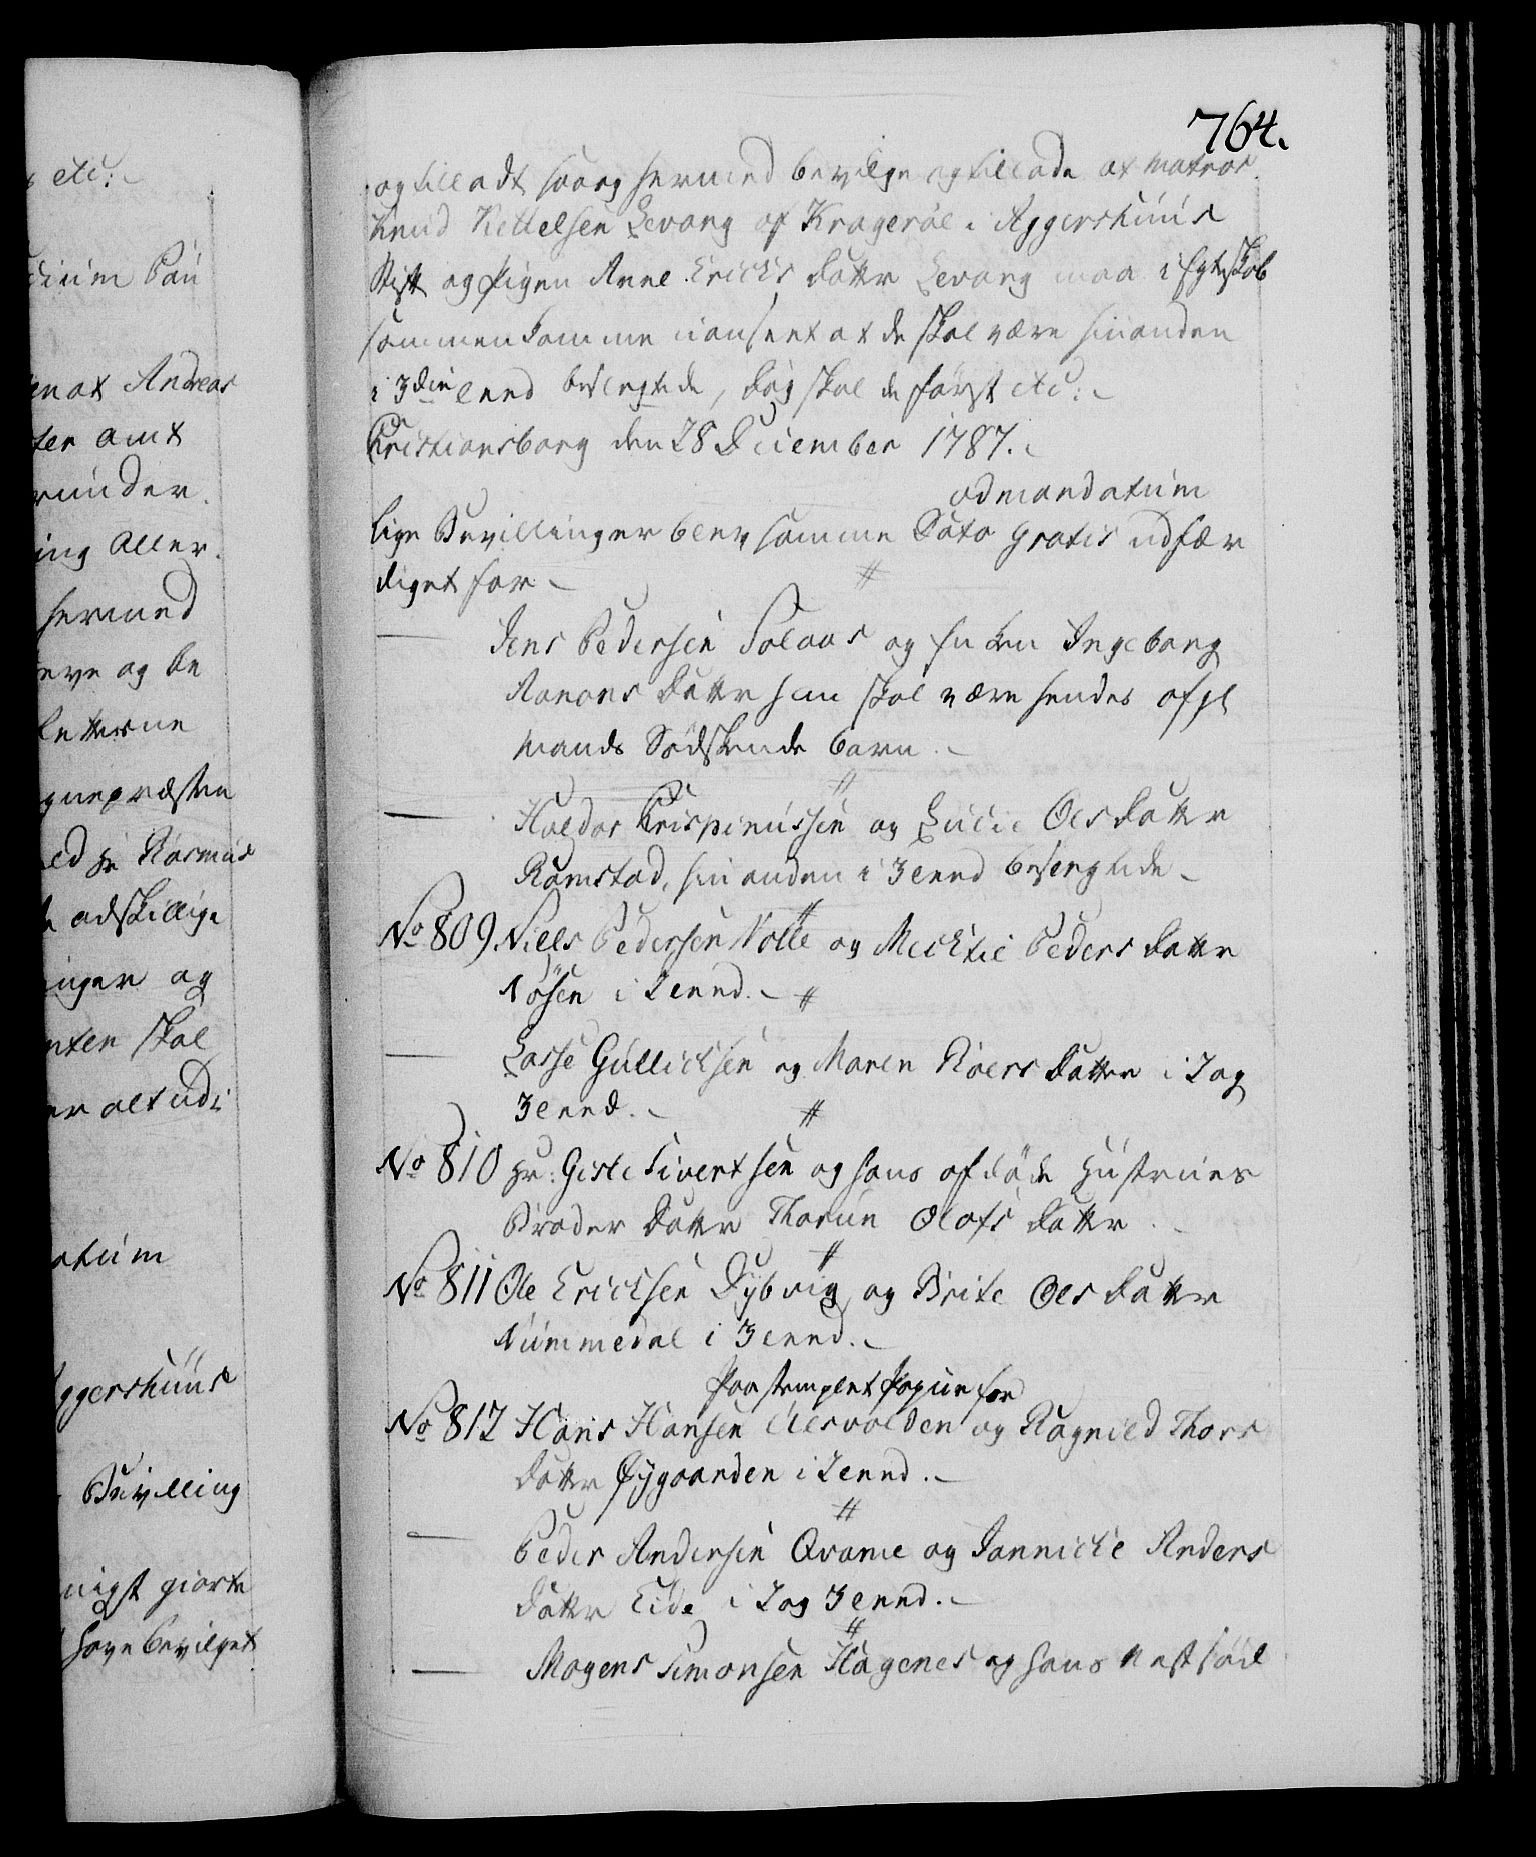 etc:
dium Pau
enat Andreas
ter amt
runder.
ing Aller.
hermed
eve og be
letterne
gnepræsten
ed hr Rasmus
adskillige
inger og
nten skal
er alt udi
atum
ggershuus
Bevilling
nigst giorte
have bevilget
764.
og tilladt saa og hermed bevilge og tillade at Matros
Knud Kettelsen Levang af Krageröe i Aggershuus
Stift og Pigen Anne Erichs Datter Levang maa i Egteskab
sammenkomme uanseet at de skal være hinanden
i 3die Leed beslegtede, dog skal de först etc:
Christiansborg den 28 December 1787.
ad mandatum
lige Bevillinger blev samme Dato gratis udfær
diget for
Jens Pedersen Solaas og Enken Ingeborg
Aanons Datter han skal være hendes afgl
Mands Södskende barn.
Haldor Crispinussen og Lucie Olsdatter
Ramstad, hinanden i 3 Leed beslegtede
No 809 Niels Pedersen Volle og Mechtel Peders Datter
Nösen i 2 Leed.
Lasse Gullichsen og Maren Roers Datter i 2 og
3 Leed.
No 810 Hr: Gisle Sivertsen og hans afdöde Hustrues
Broder Datter Thorun Olafs Datter.
No 811 Ole Erichsen Dybvig og Brite Ols Datter
Nummedal i 3 Leed.
Paa stemplet Papiir for
No 812 Hans Hansen Ulsvolden og Ragnild Thors
Datter Øygaarden i 2 Leed.
Peder Andersen Qvame og Jannicke Anders
Datter Eide i 2 og 3 Leed.
Mogens Simonsen Hagenes og hans Næstsöd